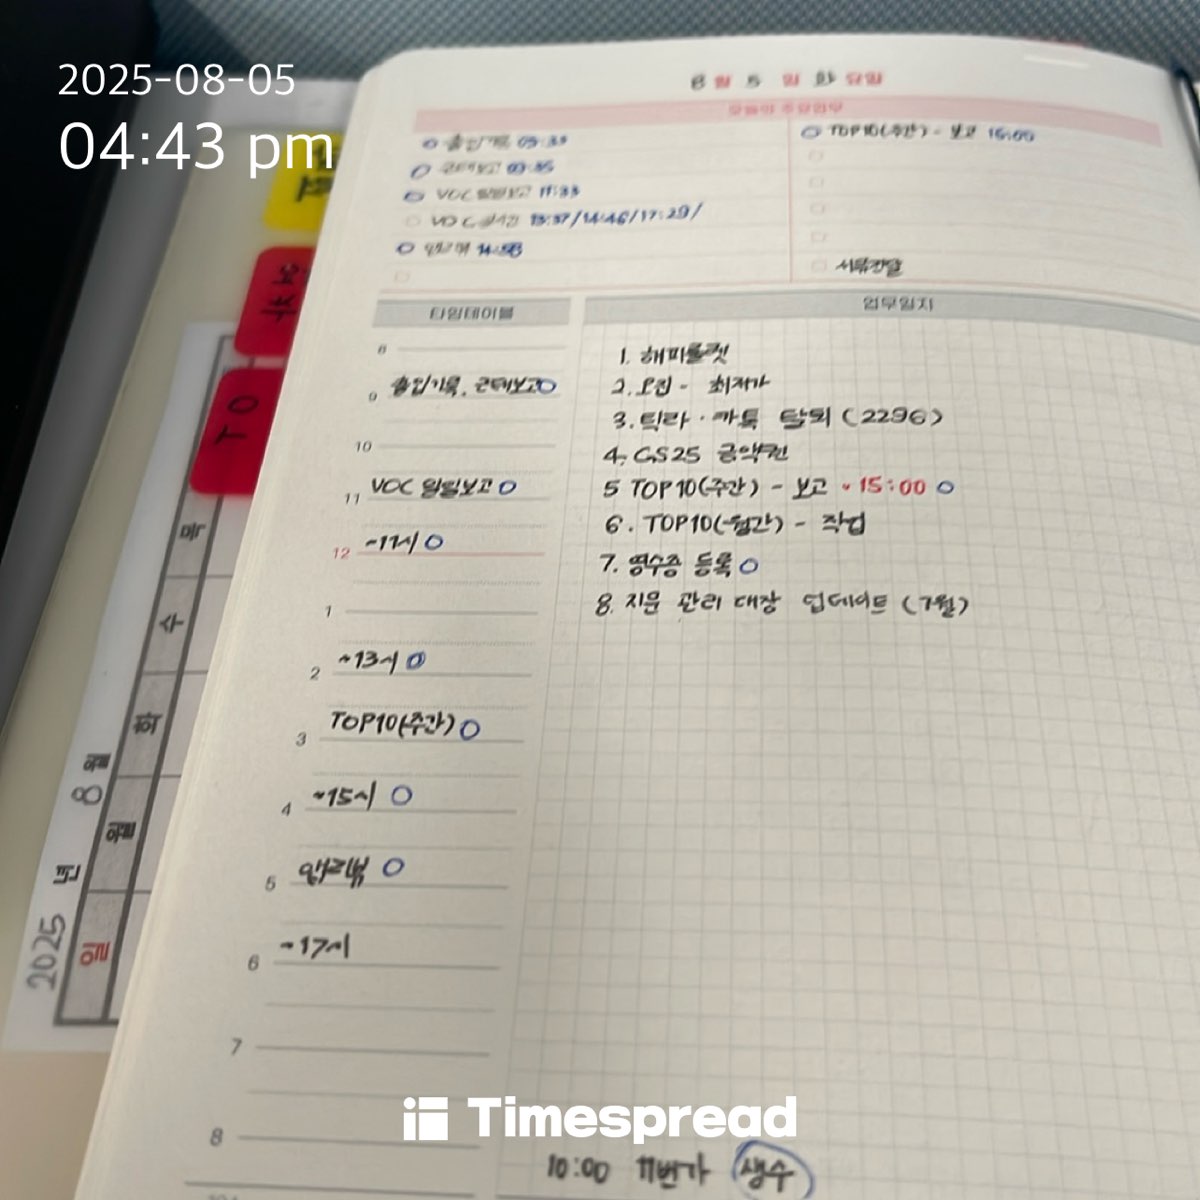 2025-08-05
04:43 pm
8월 5일 화요일
오늘의 주요업무
출입기록 09:33
근태보고 09:35
VOC 일일보고 11:33
VOC 실시간 13:37/14:46/17:29/
앱리뷰 14:58
TOP10(주간) - 보고 15:00
서류전달
타임테이블
업무일지
8
9 출입기록, 근태보고
10
11 VOC 일일보고
12 ~11시
1
2 ~13시
3 TOP10(주간)
4 ~15시
5 앱리뷰
6 ~17시
7
8
1. 해피륻켓
2. 오집 - 최저가
3. 틱라·카톡 탈퇴 (2296)
4. GS25 금액권
5 TOP10(주간) - 보고 ~15:00
6. TOP10(월간) - 작업
7. 영수증 등록
8. 지문 관리 대장 업데이트 (7월)
10:00 11번가 생수
TO
2025년 8월
일 월 화 수 목
Timespread